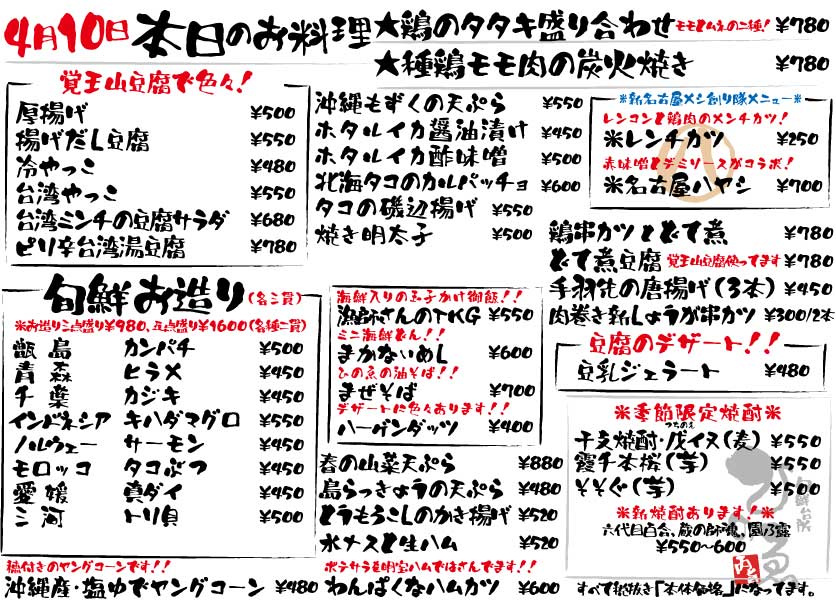 4月10日 本日のお料理
★鶏のタタキ盛り合わせ モモとムネの二種! ¥780
★種鶏モモ肉の炭火焼き ¥780
覚王山豆腐で色々!
厚揚げ ¥500
揚げだし豆腐 ¥550
冷やっこ ¥480
台湾やっこ ¥550
台湾ミンチの豆腐サラダ ¥680
ピリ辛台湾湯豆腐 ¥780
沖縄もずくの天ぷら ¥550
ホタルイカ醤油漬け ¥450
ホタルイカ酢味噌 ¥500
北海タコのカルパッチョ ¥600
タコの磯辺揚げ ¥550
焼き明太子 ¥500
※新名古屋メシ創り隊メニュー※
レンコンと鶏肉のメンチカツ!
※レンチカツ ¥250
赤味噌とデミソースがコラボ!
※名古屋ハヤシ ¥700
鶏串カツとどて煮 ¥780
どて煮豆腐 覚王山豆腐使ってます ¥780
手羽先の唐揚げ(3本) ¥450
肉巻き新しょうが串カツ ¥300/2本
旬鮮お造り(名ニ貫)
※お造り三点盛り¥980、五点盛り¥1600(各種二貫)
甑島 カンパチ ¥500
青森 ヒラメ ¥450
千葉 カジキ ¥450
インドネシア キハダマグロ ¥550
ノルウェー サーモン ¥450
モロッコ タコぶつ ¥450
愛媛 真ダイ ¥450
三河 トリ貝 ¥500
海鮮入りの玉子かけ御飯!!
漁師さんのTKG ¥550
ミニ海鮮どん!!
まかないめし ¥600
ひの魚の油そば!!
まぜそば ¥700
デザートに色々あります!!
ハーゲンダッツ ¥400
豆腐のデザート!!
豆乳ジェラート ¥480
春の山菜天ぷら ¥880
島らっきょうの天ぷら ¥480
とうもろこしのかき揚げ ¥520
水ナスと生ハム ¥520
※季節限定焼酎※
つちのえ
干支焼酎・戊イヌ(麦) ¥550
霞千本桜(芋) ¥550
そそぐ(芋) ¥500
※新焼酎あります!※
六代目百合、蔵の師魂、園乃露
¥550~600
穂付きのヤングコーンです!
沖縄産・塩ゆでヤングコーン ¥480
ポテサラを明宝ハムではさんでます!
わんぱくなハムカツ ¥600
すべて税抜き「本体価格」になってます。